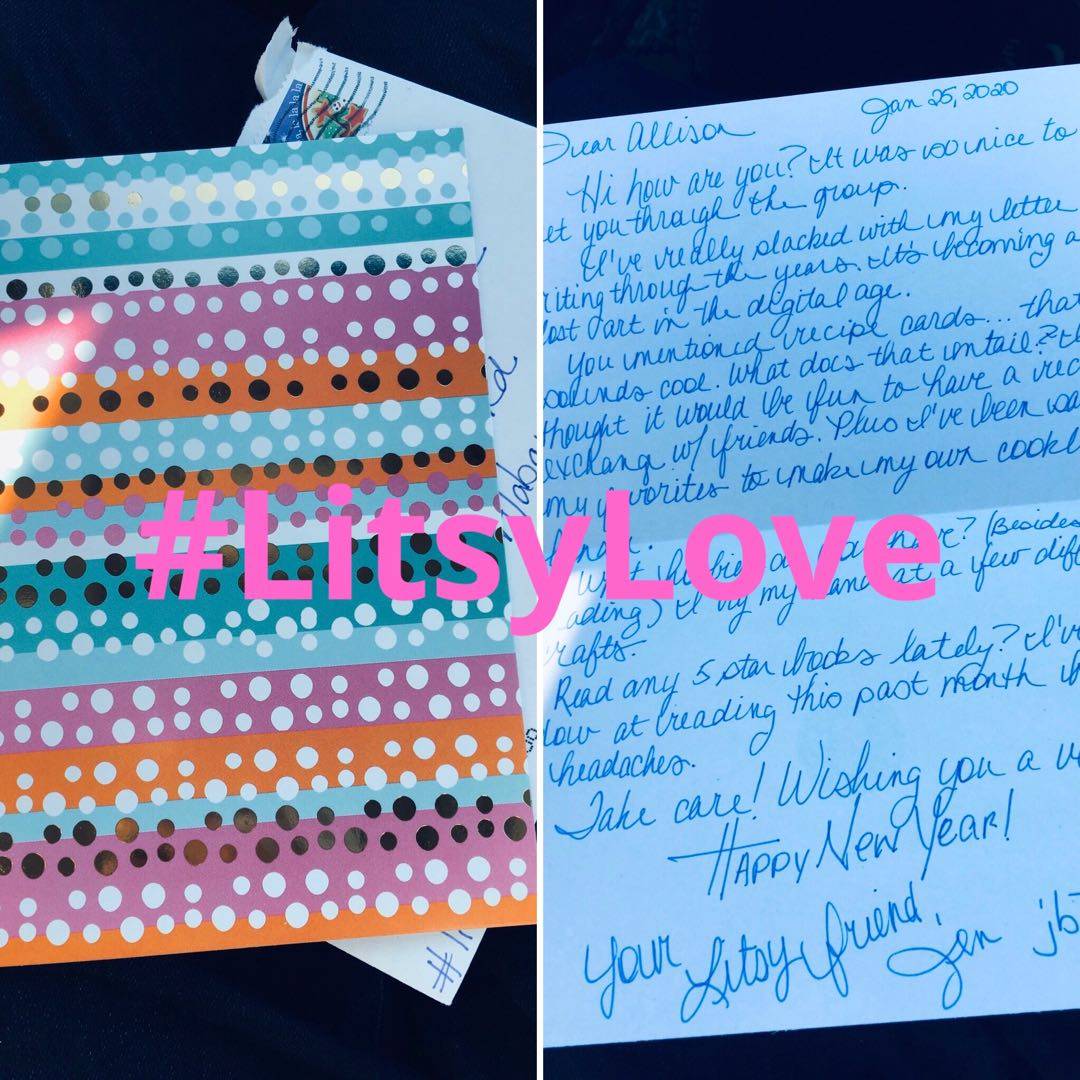 la la la
#LitsyLove
Jan 25, 2020
Dear Allison
Hi how are you? It was so nice to
et you through the group.
I've really slacked with my letter
riting through the years. It's becoming a
lost art in the digital age.
You mentioned recipe cards... that
sounds cool. What does that intail? I
thought it would be fun to have a rec
exchang w/ friends. Plus I've been wa
my favorites to make my own cookb
What have? (Besides
ading) I try my hand at a few diff
crafts.
Read any 5 star books lately? I've
low at reading this past month
headaches.
Take care! Wishing you a v
Happy New Year!
Your Litsy friend,
Jen jb